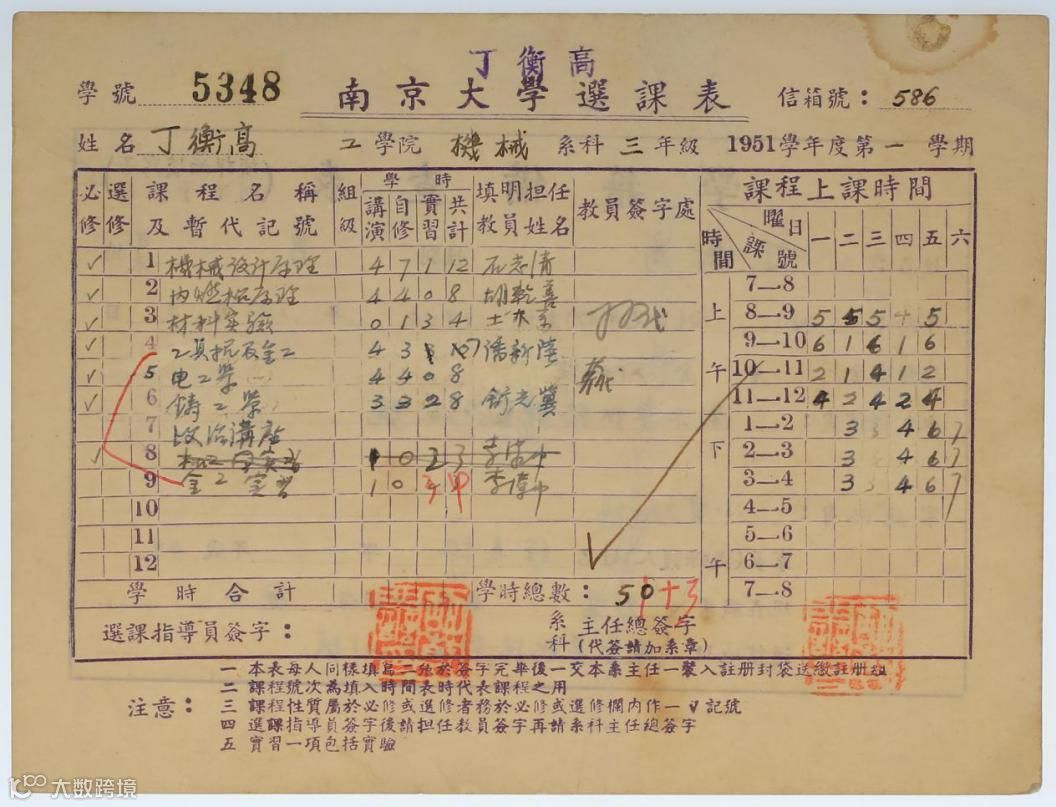 丁衡高
學號 5348 南京大學選課表 信箱號：586
姓名 丁衡高 工學院 機械 系科 三年級 1951學年度第一學期
必修 選修 課程名稱及暫代記號 組級 學時 講演 自修 實習 共計 填明担任教員姓名 教員簽字處 課程上課時間
時間 曜日 課號 一 二 三 四 五 六
✓ 1 機械设计原理 4 7 1 12 石志清
✓ 2 内燃机原理 4 4 0 8 胡乾善
✓ 3 材料实验 0 1 3 4
✓ 4 工具机及金工 4 3 潘新陸
✓ 5 电工学 4 4 0 8
✓ 6 鋳工學 3 3 2 8 舒光冀
7 政治講座
✓ 8 1 0 2 3
9 金工实習 1 0 3 4 李偉中
10
11
12
上午
7—8
8—9 5 5 5 4 5
9—10 6 1 6 1 6
10—11 2 1 4 1 2
11—12 4 2 4 2 4
下午
1—2 3 3 4 6 7
2—3 3 4 6 7
3—4 3 3 4 6 7
4—5
5—6
6—7
7—8
學時合計 學時總數：50
選課指導員簽字： 系科主任總簽字
(代簽請加系章)
注意：
一 本表每人同樣填寫二張於簽字完畢後一交本系主任一裝入註册封袋送繳註册組
二 課程號次為填入時間表時代表課程之用
三 課程性質屬於必修或選修者務於必修或選修欄内作一√記號
四 選課指導員簽字後請担任教員簽字再請系科主任總簽字
五 實習一項包括實驗
大数跨境